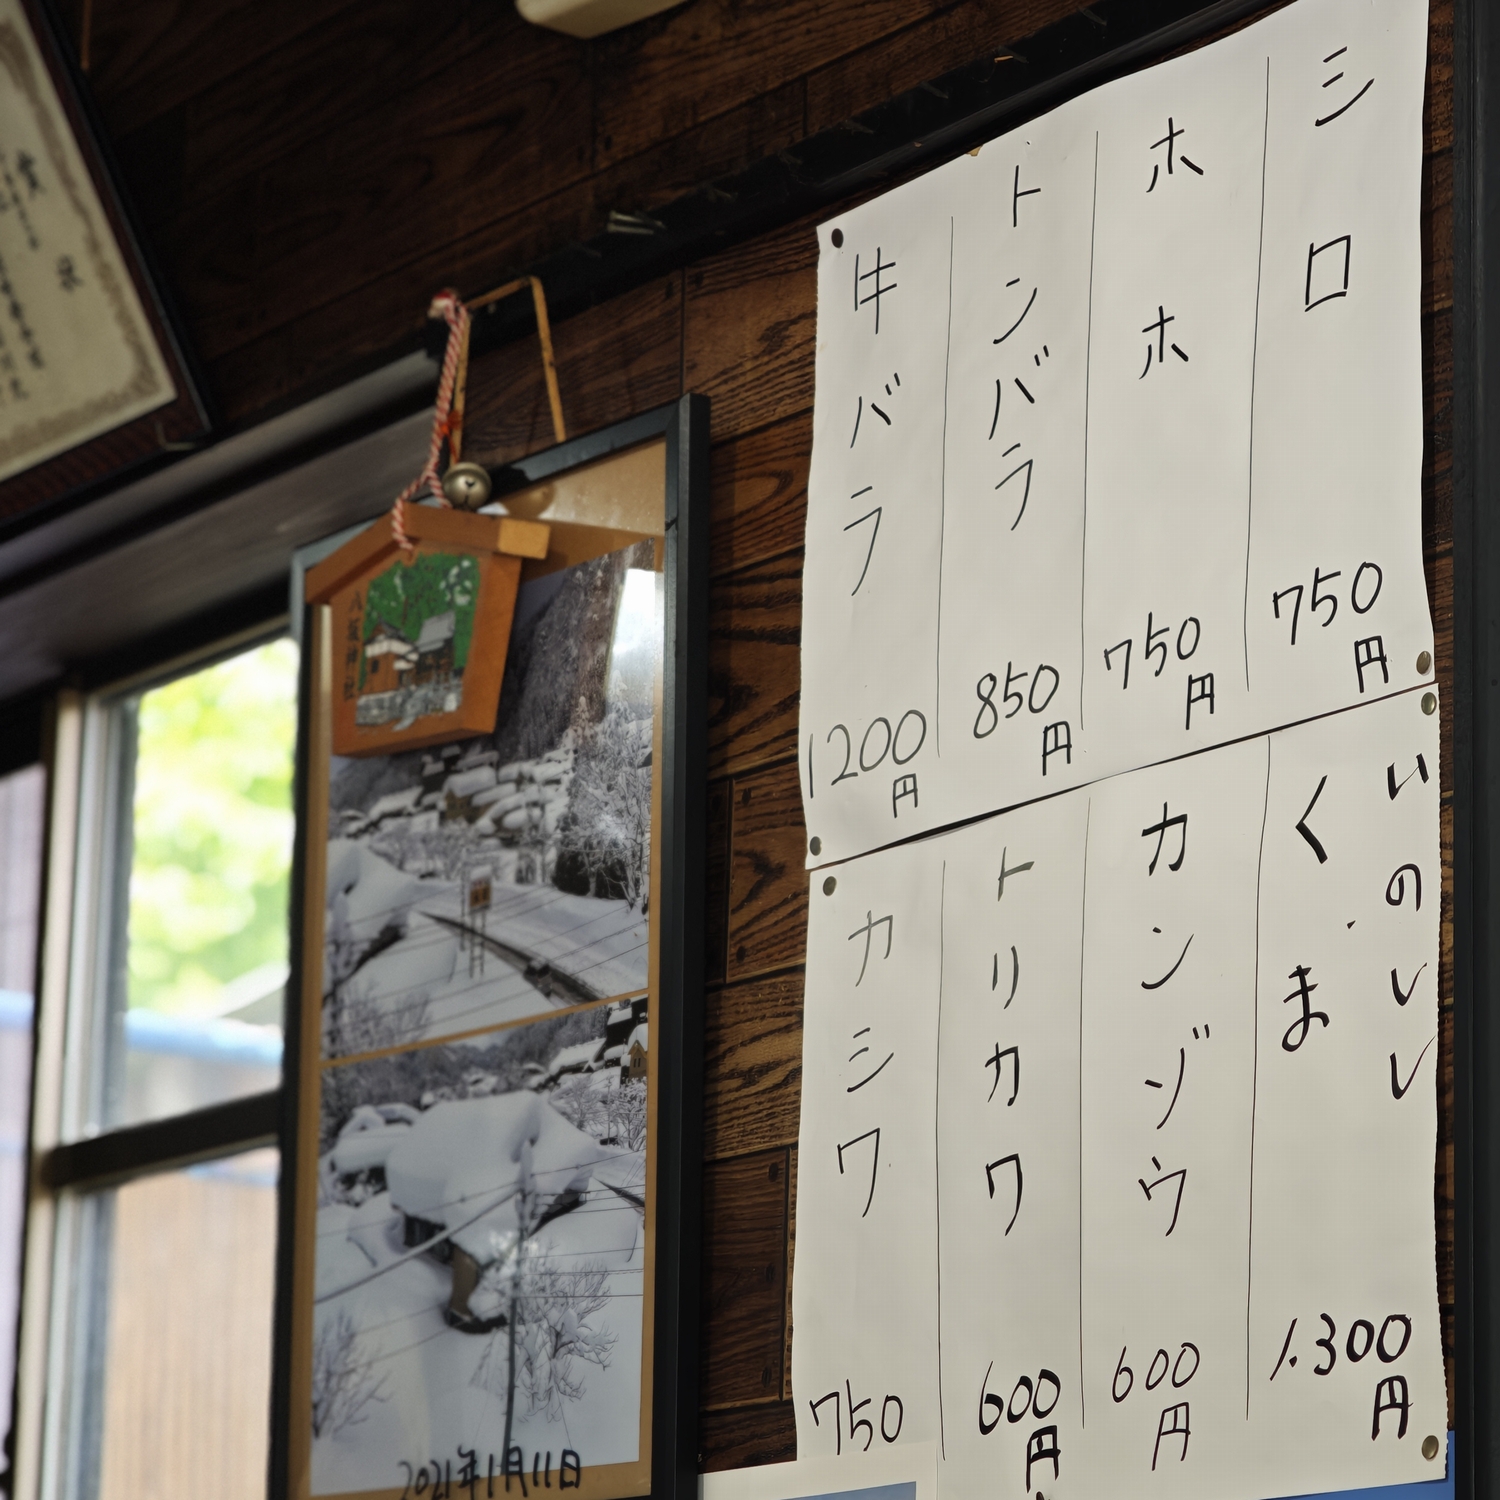 シロ 750円
ホホ 750円
トンバラ 850円
牛バラ 1200円
いのしし
くま 1.300円
カンゾウ 600円
トリカワ 600円
カシワ 750
2021年1月11日